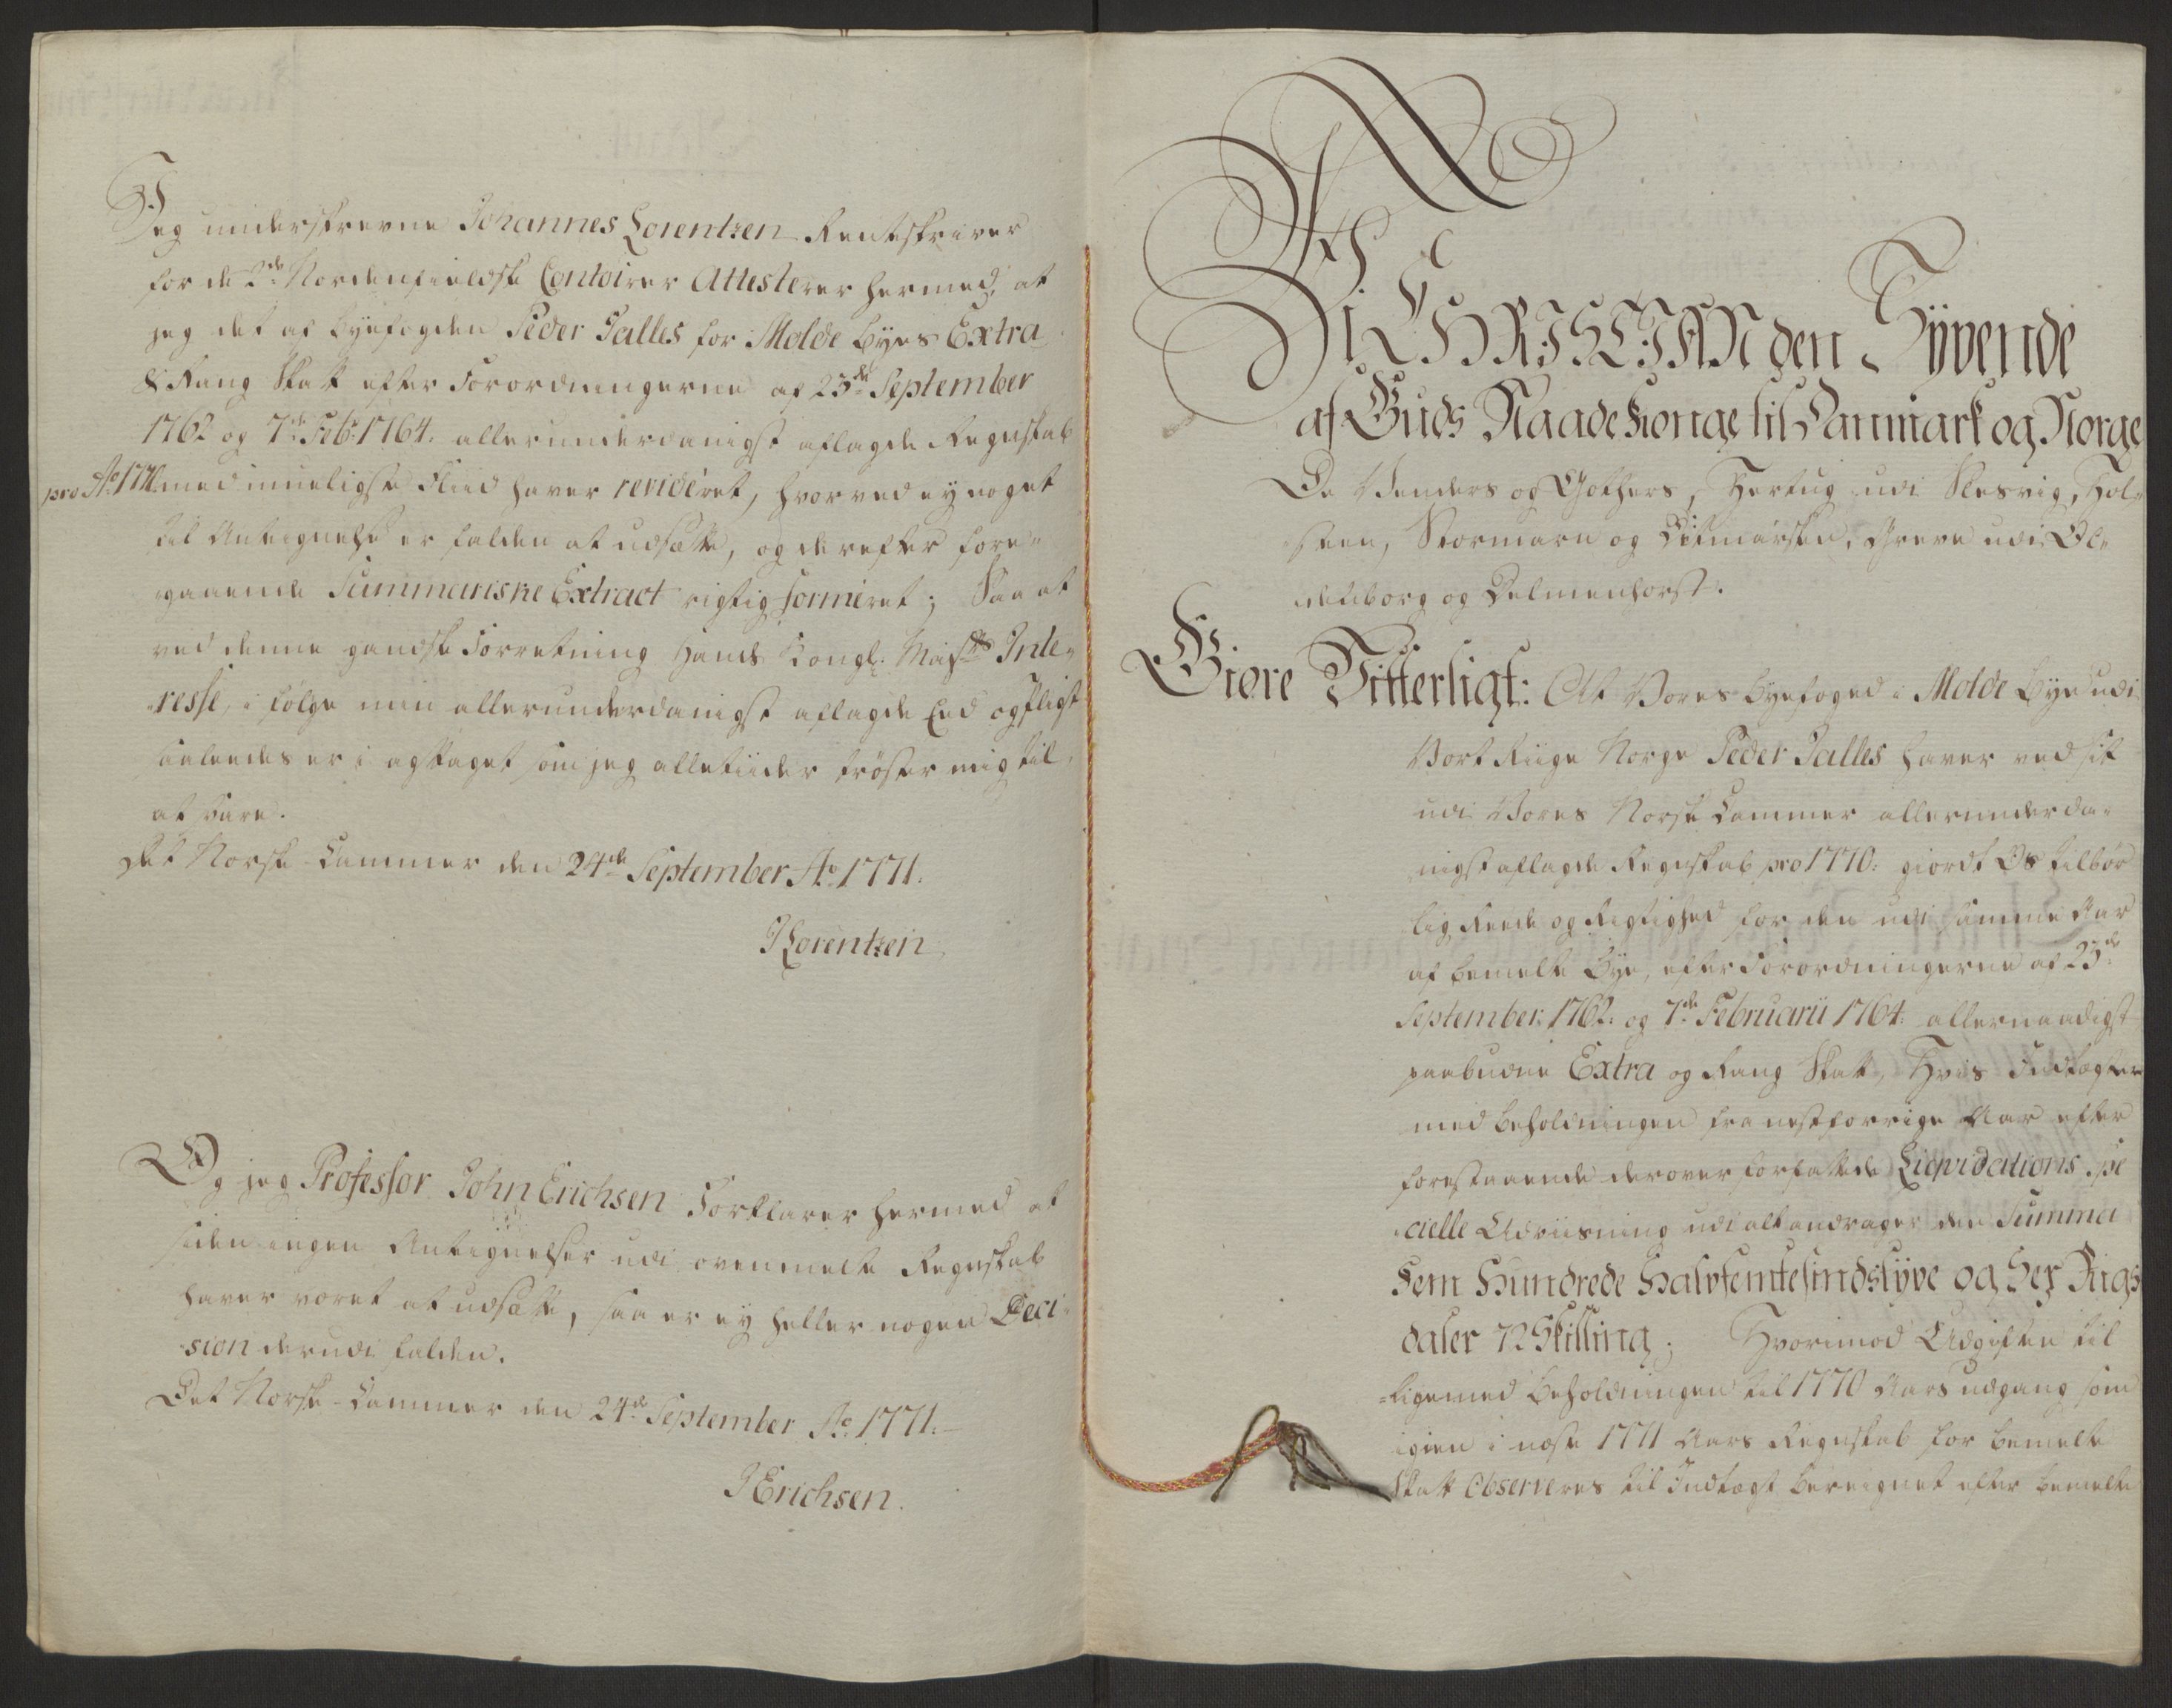 Jeg underskrevne Johannes Lorentzen Renteskriver
for de 2de Nordenfieldske Contoirer Attesterer hermed, at
jeg det af Byefogden Peder Dalles for Molde Byes Extra
& Rang Skatt efter Forordningerne af 23de September
1762 og 7de Febr: 1764. allerunderdanigst aflagde Regnskab
pro Ao 1770 med mueligste Fliid haver revideret, hvorved ey noget
til Antegnelse er falden at udsætte, og derefter fore-
gaaende Summariske Extract rigtig formeret; Saa at
ved denne gandske Forretning Hans Kongl: Maj:ts Inte-
resse, i følge min allerunderdanigst aflagde Eed og Pligt
saaledes er i agttaget som jeg alletiider trøster mig til
at svare.
Det Norske Cammer den 24de September Ao 1771.
JLorentzen
Og jeg Professor John Erichsen Forklarer hermed at
siden ingen Antegnelser udi ovenmelte Regnskab
haver været at udsætte, saa er ey heller nogen Deci-
sion derudi falden.
Det Norske Cammer den 24de September Ao 1771.
JErichsen.
Vi CHRISTIAN den Syvende
af Guds Naade Konge til Danmark og Norge
De Venders og Gothers, Hertug udi Slesvig, Hol-
steen, Stormarn og Ditmarsken, Greve udi Ol-
denborg og Delmenhorst.
Giøre Vitterligt: At Vores Byefoged i Molde Bye udi
Vort Riige Norge Peder Dalles haver ved sit
udi Vores Norske Cammer allerunderda-
nigst aflagde Regnskab pro 1770: giordt Os tilbør
lig Reede og Rigtighed for den udi samme Aar
af bemelte Bye, efter Forordningerne af 23de
September 1762: og 7de Februarii 1764. allernaadigst
paabudne Extra og Rang Skatt, Hvis Indtægter
med Beholdningen fra nestforrige Aar efter
forestaaende derover forfattede Liqvidations spe
cielle Udviisning udi alt andrager den Summa
Fem Hundrede Halvfemtesindstyve og Sex Rigs
daler 72 Skilling; Hvorimod Udgiften til
ligemed Beholdningen til 1770 Aars udgang som
igien i næste 1771 Aars Regnskab for bemelte
Skatt Observeres til Indtægt beregnet efter bemelte